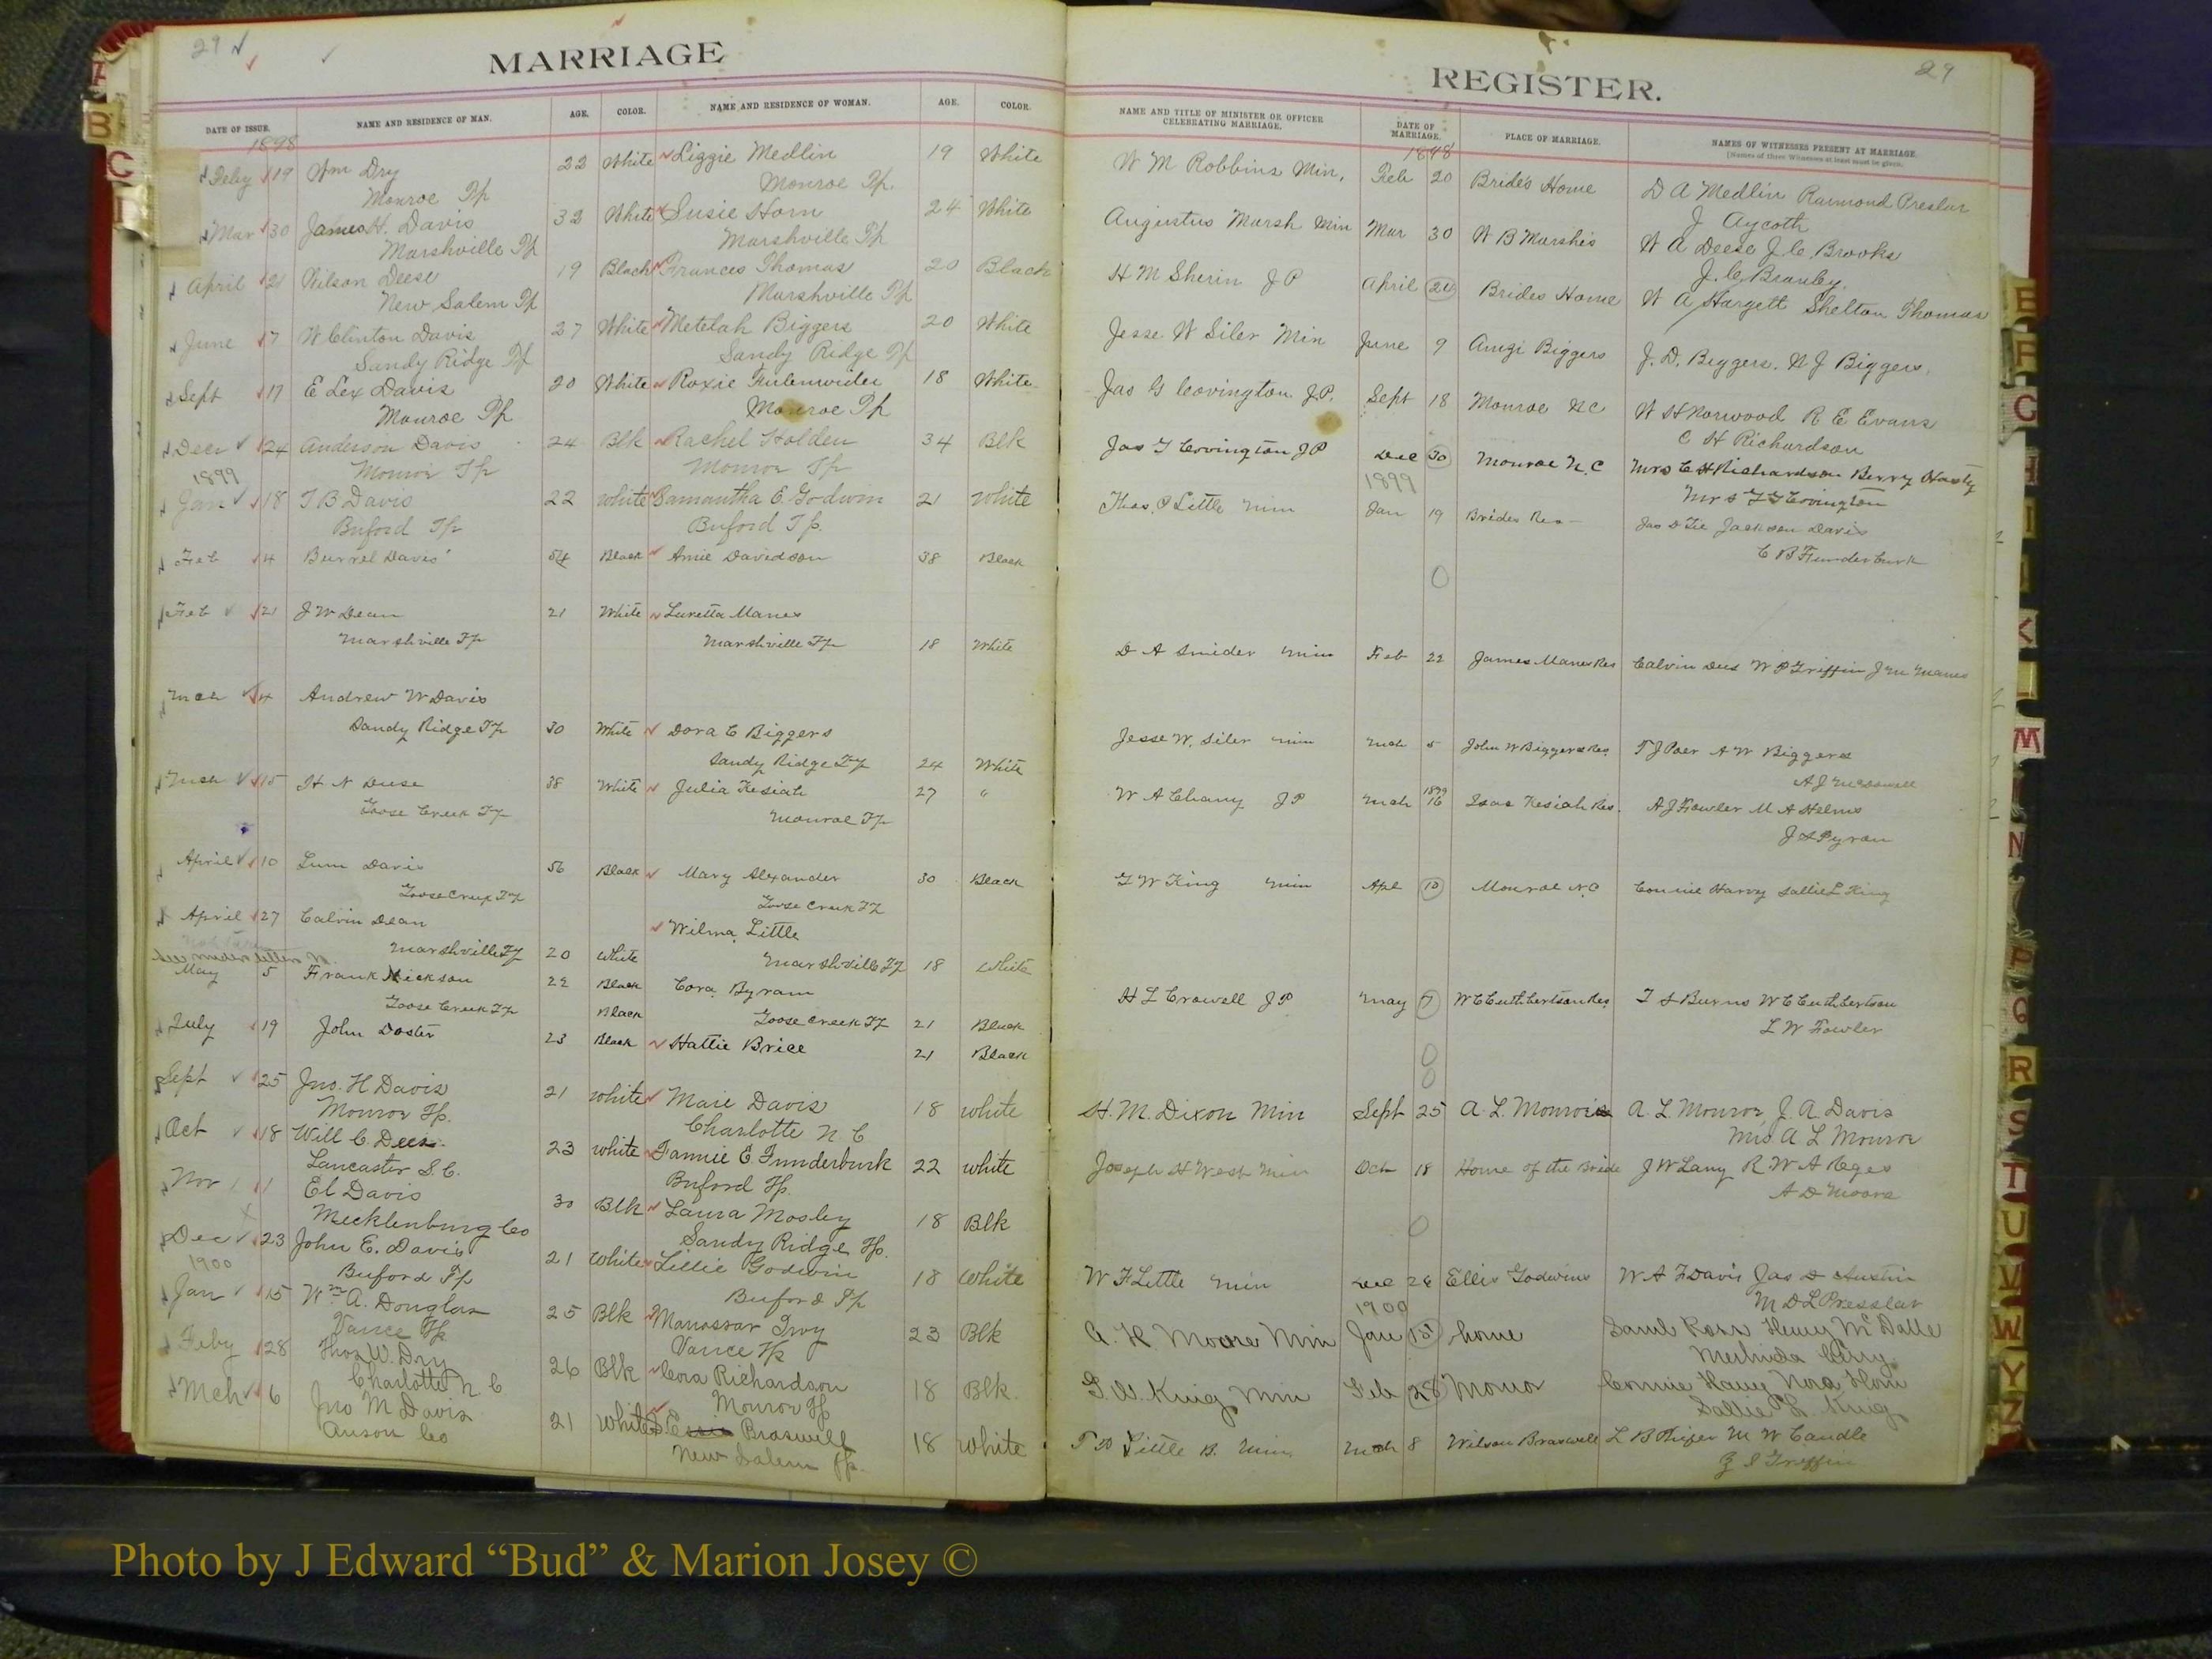 29
MARRIAGE
DATE OF ISSUE. NAME AND RESIDENCE OF MAN. AGE. COLOR. NAME AND RESIDENCE OF WOMAN. AGE. COLOR.
1898
Feby 19 Wm Dry 22 White Lizzie Medlin 19 White
Monroe Tp Monroe Tp.
Mar 30 James H. Davis 32 White Susie Horn 24 White
Marshville Tp Marshville Tp
April 21 Wilson Deese 19 Black Frances Thomas 20 Black
New Salem Tp Marshville Tp
June 7 W Clinton Davis 27 White Metelah Biggers 20 White
Sandy Ridge Tp Sandy Ridge Tp
Sept 17 E Lex Davis 20 White Roxie Fulenwider 18 White
Monroe Tp. Monroe Tp
Dec 24 Anderson Davis 24 Blk Rachel Holden 34 Blk
Monroe Tp Monroe Tp
1899
Jan 18 T B Davis 22 white Samantha E. Godwin 21 white
Buford Tp Buford Tp.
Feb 4 Burrel Davis Black Amie Davidson 38 Black
Feb 21 J W Dean 21 White Luretta Manes
Marshville Tp Marshville Tp 18 White
Mch 4 Andrew W Davis
Sandy Ridge Tp 30 White Dora C Biggers
Sandy Ridge Tp 24 White
Mch 15 H N Deese 38 White Julia Kesiah 27 "
Goose Creek Tp Monroe Tp
April 10 Lum Davis 56 Black Mary Alexander 30 Black
Goose Creek Tp Goose Creek Tp
April 27 Calvin Dean Wilma Little
Marshville Tp 20 White Marshville Tp 18 White
See under letter
May 5 Frank Nickson 22 Black Cora Byram
Goose Creek Tp Black Goose Creek Tp 21 Black
July 19 John Doster 23 Black Hattie Brice 21 Black
Sept 25 Jno. H Davis 21 white Marie Davis 18 white
Monroe Tp. Charlotte N. C
Oct 18 Will C. Dees 23 white Fannie E. Funderburk 22 white
Lancaster S. C. Buford Tp.
Nov 1 El Davis 30 Blk Laura Mosley 18 Blk
Mecklenburg Co Sandy Ridge Tp.
Dec 23 John E. Davis 21 White Lillie Godwin 18 White
Buford Tp Buford Tp
1900
Jan 15 Wm A. Douglas 25 Blk Manassar Ivey 23 Blk
Vance Tp Vance Tp
Feby 28 Thos W. Dry 26 Blk Cora Richardson 18 Blk.
Charlotte N. C. Monroe Tp
Mch 6 Jno M Davis 21 white Braswell 18 white
Anson Co New Salem Tp.
REGISTER.
29
NAME AND TITLE OF MINISTER OR OFFICER CELEBRATING MARRIAGE. DATE OF MARRIAGE. PLACE OF MARRIAGE. NAMES OF WITNESSES PRESENT AT MARRIAGE.
[Names of three Witnesses at least must be given.
1898
W M Robbins Min, Feb 20 Bride's Home D A Medlin Raymond Preslar
J Aycoth
Augustus Marsh Min Mar 30 W B Marshes W A Deese J. C. Brooks
J. C. Branley.
H M Sherin J P April 24 Brides Home W A Hargett Shelton Thomas
Jesse W Siler Min June 9 Amzi Biggers J. D. Biggers. N J Biggers.
Jas G Covington J.P. Sept 18 Monroe N C W H Norwood R E Evans
C H Richardson
Jas G Covington J P Dec 30 Monroe N. C Mrs C H Richardson Berry Hasty
Mrs J G Covington
1899
Thos. P Little Min Jan 19 Brides Res Jackson Davis
C B Funderburk
0
D A Snider Min Feb 22 James Manes Res Calvin Dees W P Griffin J M Manes
Jesse W. Siler Min Mch 5 John W Biggers Res. T J Porr A W Biggers
A J McDowell
W A Chany J P Mch 1899 16 Isac Kesiah Res. A J Fowler M A Helms
J S Pyron
G W King Min Apl 10 Monroe N C Connie Harvy Sallie L King
H L Crowell J P May 7 W C Cuthbertson Res T S Burns W C Cuthbertson
L W Fowler
0
0
H. M. Dixon Min Sept 25 A. L. Monroe A. L Monroe J. A. Davis
Mrs A L Monroe
Joseph H West Min Oct 18 Home of the Bride J W Lany R W A Reges
A D Moore
0
W F Little Min Dec 28 Ellis Godwins W A F Davis Jas D Austin
M D L Presslar
1900
A. H. Moore Min Jan 15 home Saml Ross Henry McDalle
G. W. King Min Feb 28 Monroe Connie Harvy Nora Horn
Sallie L. King
T D Little B. Min. Mch 8 Wilson Braswell L B Thifer M W Caudle
Z S Griffin
A
B
C
I
E
F
G
H
I
J
K
L
M
N
P
Q
R
S
T
U
V
W
Y
Z
Photo by J Edward “Bud” & Marion Josey ©